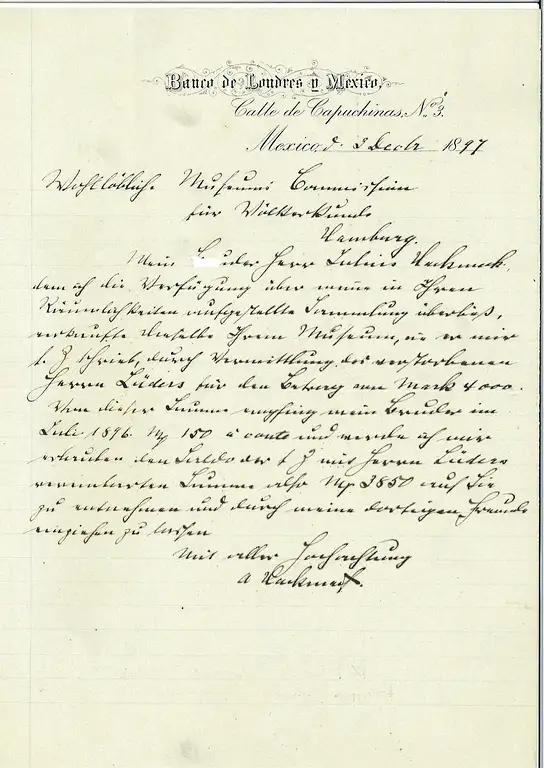 Banco de Londres y Mexico,
Calle de Capuchinas, Nº 3.
Mexico, d. 3 Decbr 1897
Wohllöbliche Museums Commission
für Völkerkunde
Hamburg.
Mein Bruder Herr Julius Hackmack,
dem ich die Verfügung über meine in Ihren
Räumlichkeiten aufgestellte Sammlung überließ,
verkaufte dieselbe Ihrem Museum, wie er mir
s. Z. schrieb, durch Vermittlung des verstorbenen
Herrn Lüders für den Betrag von Mark 4000.
Von dieser Summe empfing mein Bruder im
Juli 1896. Mk 150 à conto und werde ich mir
erlauben den Saldo der s. Z. mit Herrn Lüders
vereinbarten Summe also Mk 3850 auf Sie
zu entnehmen und durch meine dortigen Freunde
einziehen zu lassen
Mit aller Hochachtung
A Hackmack.